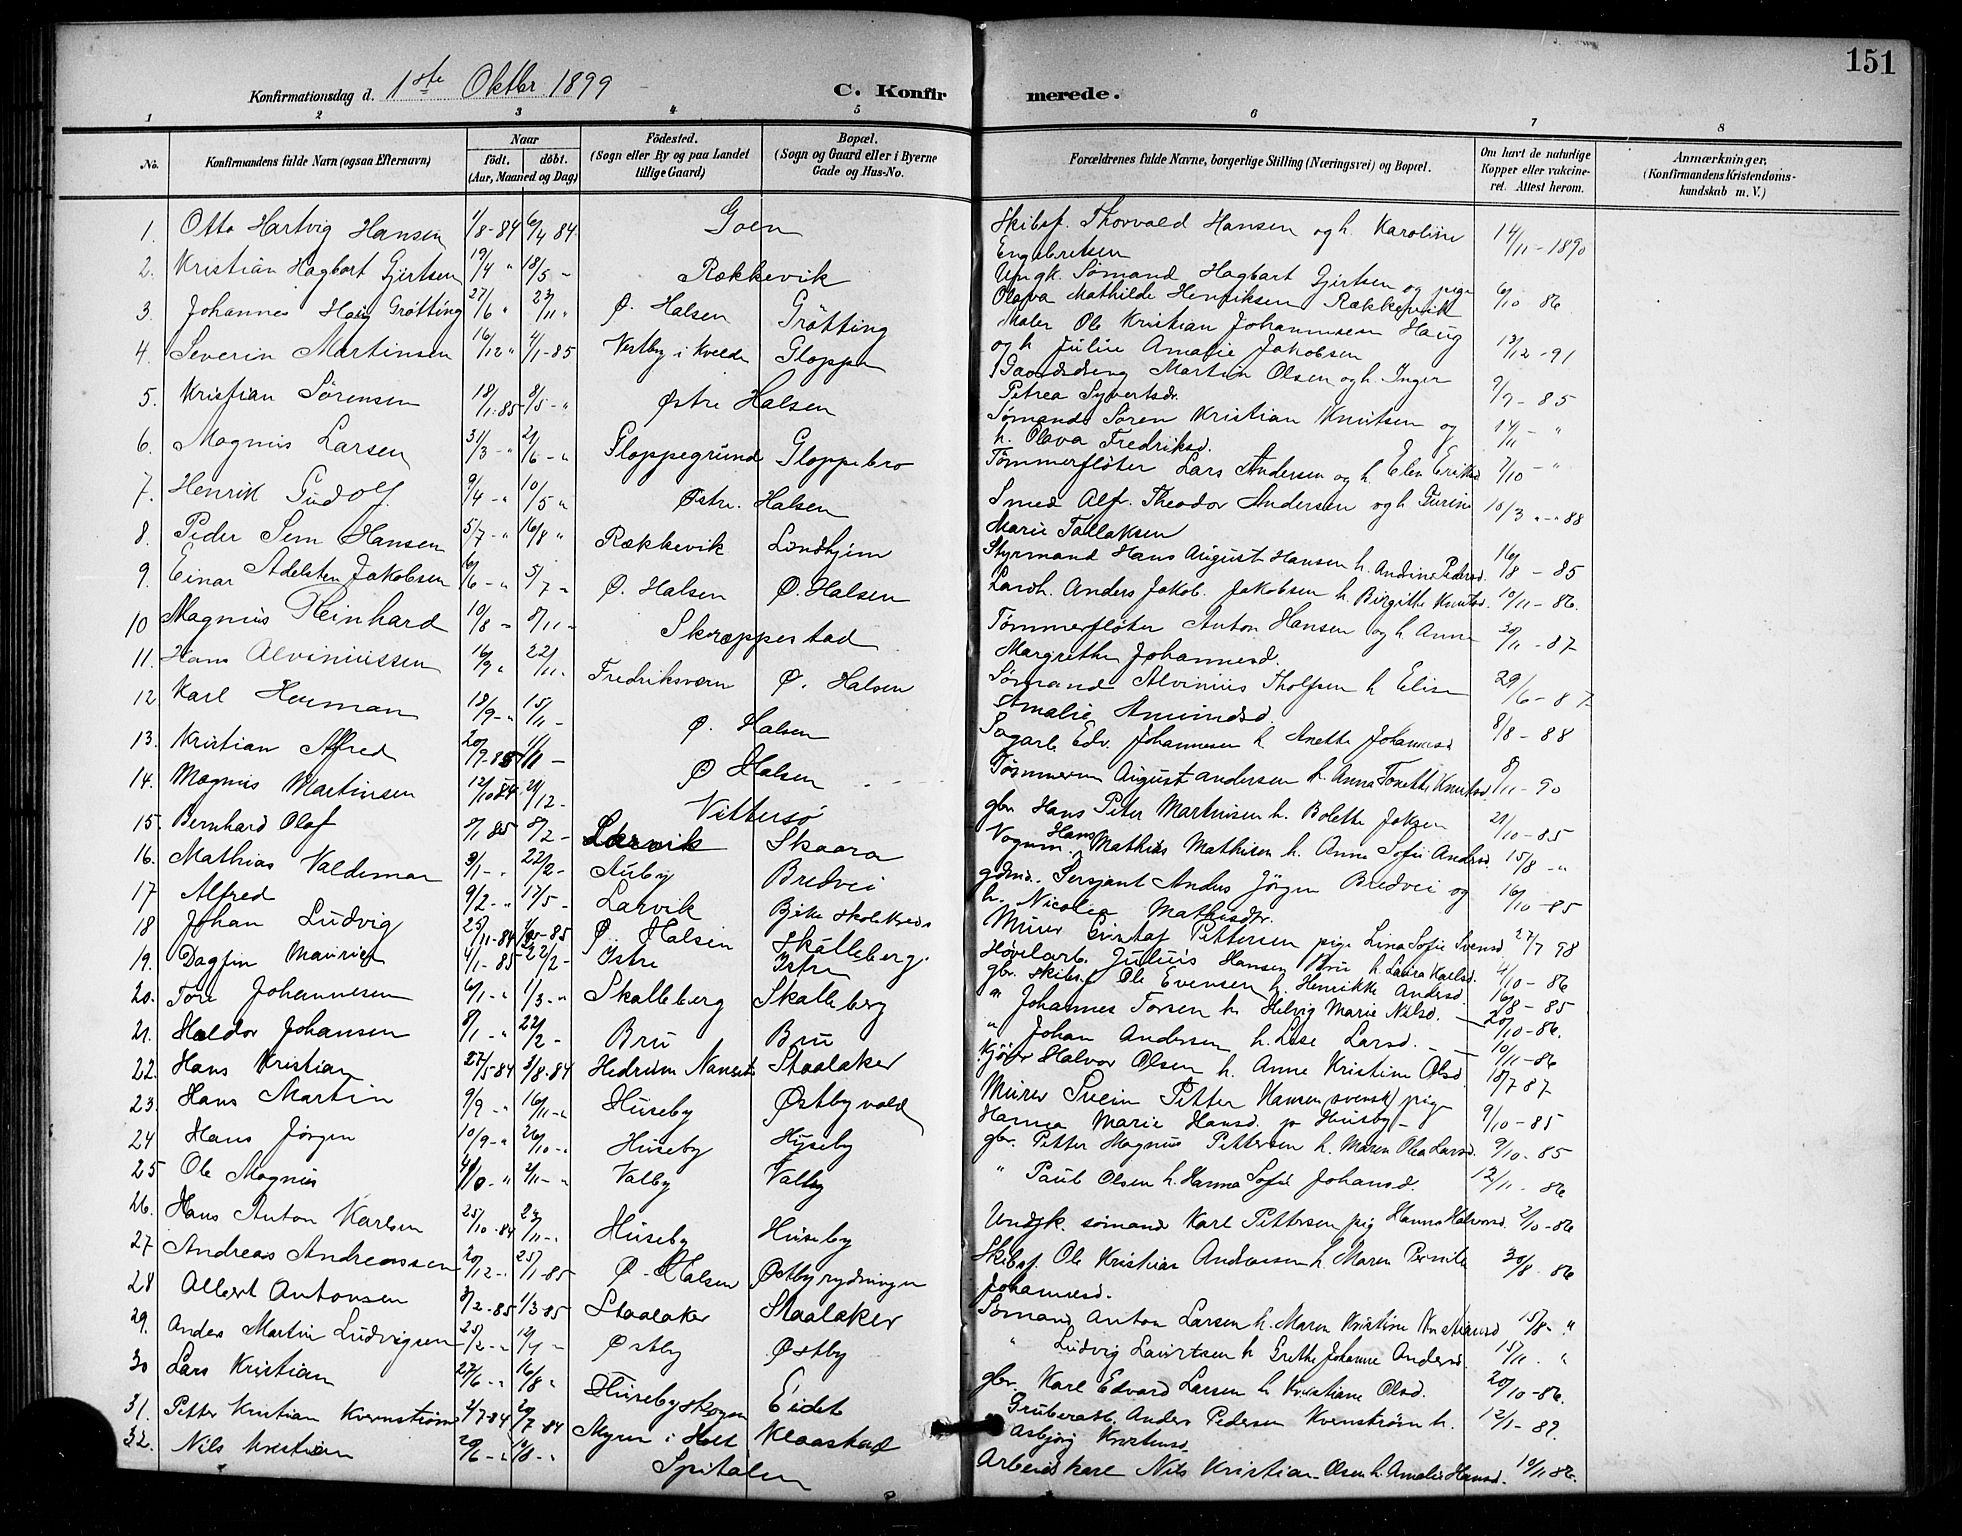 151
Konfirmationsdag d. 1ste Oktbr. 1899
C. Konfirmerede.
1 2 3 4 5 6 7 8
No.
Konfirmandens fulde Navn (ogsaa Efternavn)
Naar
födt. döbt.
(Aar, Maaned og Dag)
Födested.
(Sogn eller By og paa Landet
tillige Gaard)
Bopæl.
(Sogn og Gaard eller i Byerne
Gade og Hus-No.
Forældrenes fulde Navne, borgerlige Stilling (Næringsvei) og Bopæl.
Om havt de naturlige
Kopper eller vakcine-
ret. Attest herom.
Anmærkninger,
(Konfirmandens Kristendoms-
kundskab m. V.)
1. Otto Hartvig Hansen 1/8-84 6/4 84 Goen Skibsf. Thorvald Hansen og h. Karoline 14/11-1890
Engebretsen
2. Kristian Hagbart Gjertsen 19/4 " 18/5 - Rækkevik Ungk. Sømand Hagbart Gjertsen og pige
Olava Mathilde Henriksen Rækkevik 6/10 86
3. Johannes Haug Grøtting 27/6 " 23/11 " Ø. Halsen Grøtting Maler Ole Kristian Johannesen Haug
og h Julie Amalie Jakobsen 13/12-91
4. Severin Martinsen 16/12 " 4/1-85 Vestby i Kvelde Gloppe Gaardsdreng Martin Olsen og h. Inger
Petrea Syvertsdr. 9/9-85
5. Kristian Sörensen 18/1-85 8/5-" Østre Halsen Sømand Soren Kristian Knutsen og
h. Olava Fredriksd. 14/11 - "
6. Magnus Larsen 31/3-" 21/6-" Gloppegrund Gloppebro Tømmerflöter Lars Andersen og h. Elen Eriksd 7/10-"
7. Henrik Gudolf. 9/4-" 10/5 " Østre. Halsen Smed Alf. Theodor Andersen og h Gurine 10/3 "-" 88
Marie Tallaksen
8. Peder Sem Hansen 5/7-" 16/8 " Rækkevik Lindhjem Styrmand Hans August Hansen h. Andine Pedersd. 16/8-85
9. Einar Adelsten Jakobsen 6/6-" 5/7- Ø. Halsen Ø. Halsen Lardh. Anders Jakob. Jakobsen h Birgitte Knutsd. 10/11-86.
10 Magnus Reinhard 10/8 - 8/11 - Skræppestad Tømmerflöter Anton Hansen og h Anne 30/11-87
Margrethe Johannesd.
11. Hans Alviniussen 16/9 " 22/11 - Fredriksvern Ø. Halsen Sømand Alvinius Tholfsen h Elise 29/6-87
Amalie Amundsd.
12 Karl Herman 13/9-" 15/11- Ø. Halsen Sagarb. Edv. Johannesen h Anette Johannesd 8/8-88
13. Kristian Alfred 20/9-85 1/11 - Ø Halsen Tømmerm August andersen h. Anna Tonette Knutsd. 8/11-90
14. Magnus Martinsen 12/10 84. 21/12- Vittersø gbr. Hans Peter Martinisen h. Bolette Jaksen 21/10-85
15. Bernhard Olaf 8/1 85 8/2- Larvik Skaara Vognm. Hans Mathias Mathisen h. Anne Sofie Andersd. 15/8-"
16. Mathias Valdemar 3/1-. 22/2- Auby Bredvei gdmd. Sersjant Anders Jörgen Bredvei og
h. Nicolea Mathisdtr. 16/10-85
17 Alfred 9/2-" 17/5- Larvik Bjerke Skolekreds Murer Gustaf Pettersen pige Lina Sofie Svensd. 27/7 98
18 Johan Ludvig 25/11-84 Ø. Halsen Skalleberg. Høvelarb. Julius Hansen Bru h. Laura Karlsd. 4/10-86
19. Dagfin Mauritz 4/1-85 22/2- Istre Istre gbr. skibsf Ole Evensen h. Henrikke Andersd. 16/8-85
20. Tore Johannesen 6/1-" 1/3-" Skalleberg Skalleberg " Johannes Torsen h. Helvig Marie Nilsd. - 20/10-86.
21. Haldor Johansen 8/1 " 22/2- Bru Bru " Johan Andersen h. Lise Larsd. - - 10/11-86
22. Hans Kristian 27/5-84 3/8-84 Hedrum Nanset Staalaker Kjører Halvor Olsen h. Anne Kristine Olsd. 18/7 87
23. Hans Martin 9/9-" 16/11-" Huseby Østbyvold Murer Svein Petter Hansen (svensk) pige
Hanna Marie Hansd. p Huseby - 9/10-85
24 Hans Jørgen 10/9-" 26/10-" Huseby Huseby gbr. Petter Magnus Pettersen h. Maren Olea Larsd. 9/10-85
25 Ole Magnus 4/10-" 2/11-" Valby Valby " Paul Olsen h. Hanna Sofie Johansd. 12/11-86
26. Hans Anton Karlsen 25/10-84 23/11-" Huseby Huseby Undgk. sømand Karl Pettersen pig Hanna Halvorsd. 2/10-86
27 Andreas Andreassen 20/12-" 25/1-85 Ø. Halsen Østbyrydningen Skibsf. Ole Kristian Andreassen h. Maren Pernile 30/8-86
Johannesd.
28 Albert Antonsen 3/2-85 1/3-85 Staalaker Staalaker Sömand Anton Larsen h. Maren Kristine Kristiansd 15/8-"
29. Anders Martin Ludvigsen 25/2-" Østby Østby " Ludvig Lauritsen h Grethe Johanne Andersd. 15/11. "
30 Lars Kristian 27/6-" 16/8 " Husebyskogen Eidet gbr. Karl Edvard Larsen h Kristiane Olsd. 20/10-86.
31. Petter Kristian Kvernstrøm 2/7-84 20/7-84 Myren i Holt Klaastad Gruberarb. Anders Pedersen Kvernstrøm h. 12/1-87.
Asbjørg Knutsend.
32. Nils Kristian 20/6-" 10/8-" Spitalen Arbeidskarl Nils Kristian Olsen h. Amalie Hansd. 10/11 86.